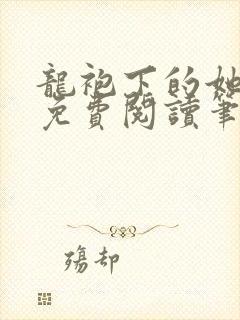 龍袍下的她
免費閱讀筆
殤却